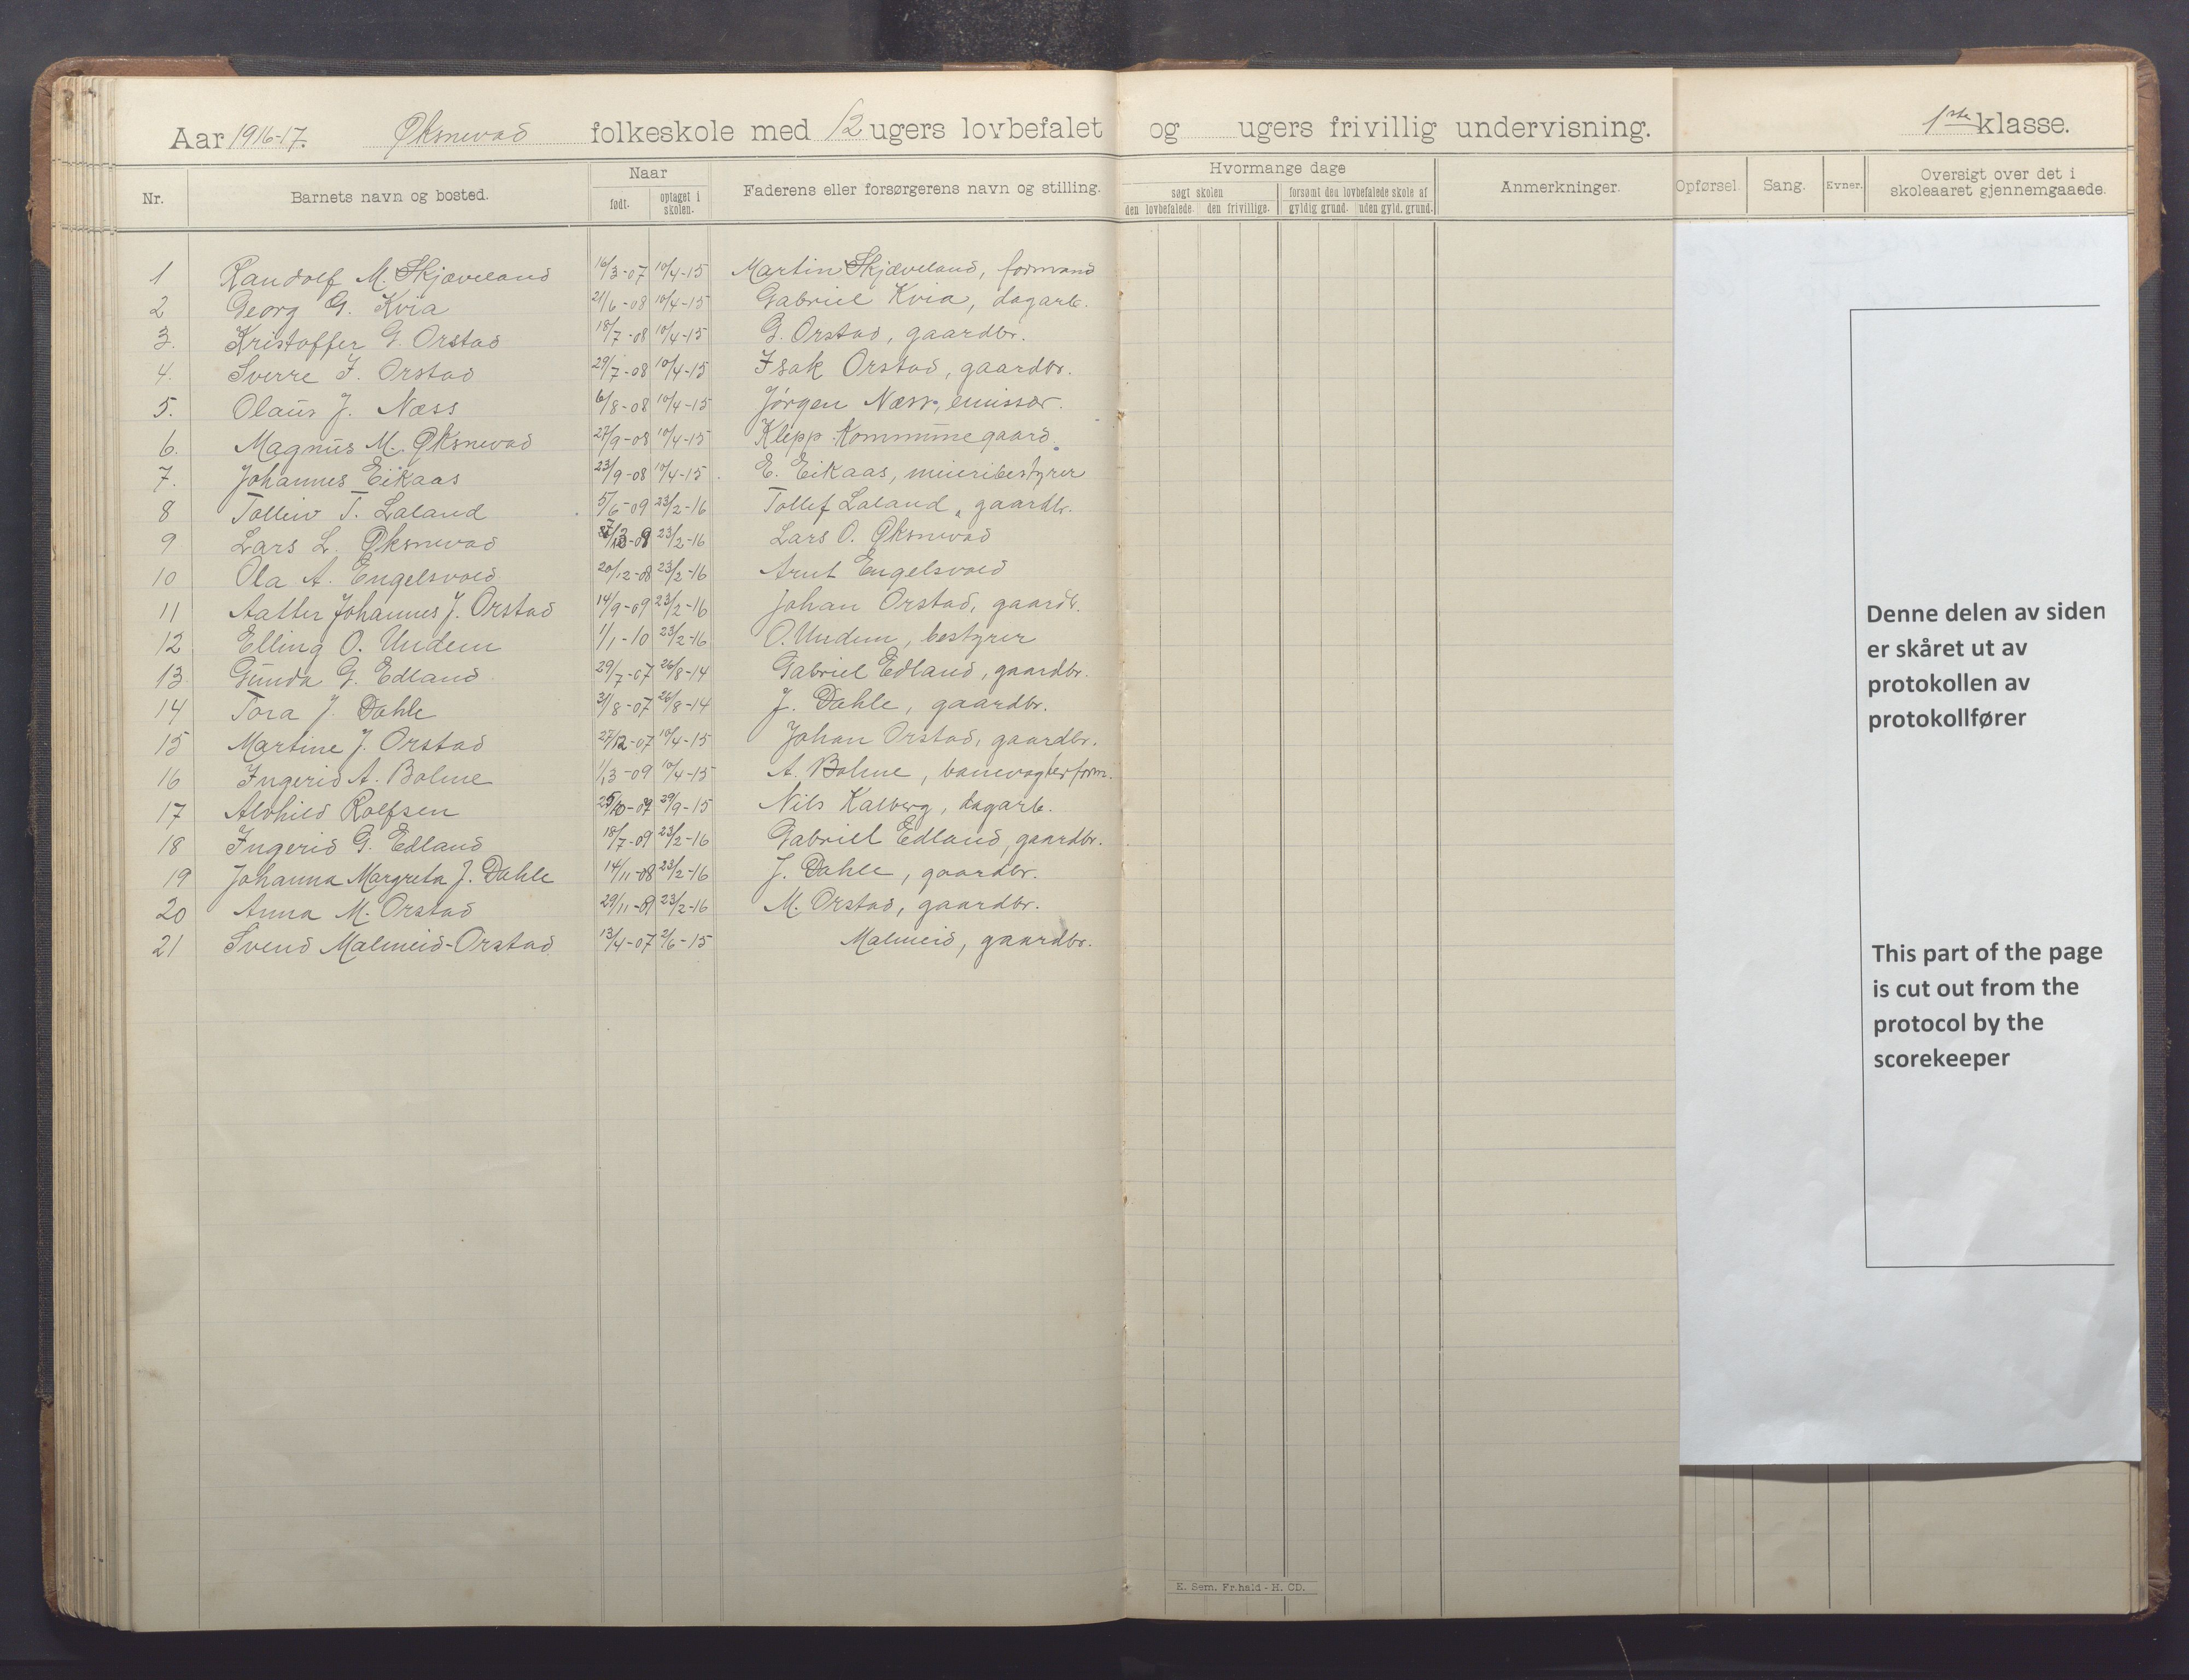 Aar 1916-17. Øksnevad folkeskole med 12 ugers lovbefalet og ugers frivillig undervisning. 1ste klasse.
Nr. Barnets navn og bosted. Naar født. optaget i skolen. Faderens eller forsørgerens navn og stilling. Hvormange dage søgt skolen den lovbefalede. den frivillige. forsømt den lovbefalede skole af gyldig grund. uden gyld. grund. Anmerkninger. Opførsel. Sang. Evner. Oversigt over det i skoleaaret gjennemgaaede.
1 Randolf M. Skjæveland 16/3-07 10/4-15 Martin Skjæveland, formand
2 Georg G. Kvia 21/6-08 10/4-15 Gabriel Kvia, dagarb.
3. Kristoffer G. Orstad 18/7-08 10/4-15 G. Orstad, gaardbr.
4. Sverre I. Orstad 29/7-08 10/4-15 Isak Orstad, gaardbr.
5. Olaus J. Næss 6/8-08 10/4-15 Jørgen Næss, emissær.
6. Magnus M. Øksnevad 27/9-08 10/4-15 Klepp Kommunegaard
7. Johannes Eikaas 23/9-08 10/4-15 E. Eikaas, meieribestyrer
8 Talleiv T. Laland 5/6-09 23/2-16 Tollef Laland, gaardbr.
9 Lars L. Øksnevad 23/2-16 Lars O. Øksnevad
10 Ola A. Engelsvold 20/12-08 23/2-16 Arnt Engelsvold
11 Johannes J. Orstad 14/9-09 23/2-16 Johan Orstad, gaardb.
12 Elling O. Undem 1/1-10 23/2-16 O. Undem, bestyrer
13 Gunda G. Edland 29/7-07 26/8-14 Gabriel Edland, gaardbr.
14 Tora J. Dahle 31/8-07 26/8-14 J. Dahle, gaardbr.
15 Martine J. Orstad 27/12-07 10/4-15 Johan Orstad, gaardbr.
16 Ingerid A. Bolme 1/3-09 10/4-15 A. Bolme, banevogterform.
17 Alvhild Rolfsen 29/9-15 Nils Kalberg, dagarb.
18 Ingerid G. Edland 18/7-09 23/2-16 Gabriel Edland, gaardbr.
19 Johanna Margreta J. Dahle 14/11-08 23/2-16 J. Dahle, gaardbr.
20 Anna M. Orstad 29/11-09 23/2-16 M. Orstad, gaardbr.
21 Svend Malmeid-Orstad 13/4-07 2/6-15 Malmeid, gaardbr.
Denne delen av siden
er skåret ut av
protokollen av
protokollfører
This part of the page
is cut out from the
protocol by the
scorekeeper
E. Sem. Fr.hald - H. CD.